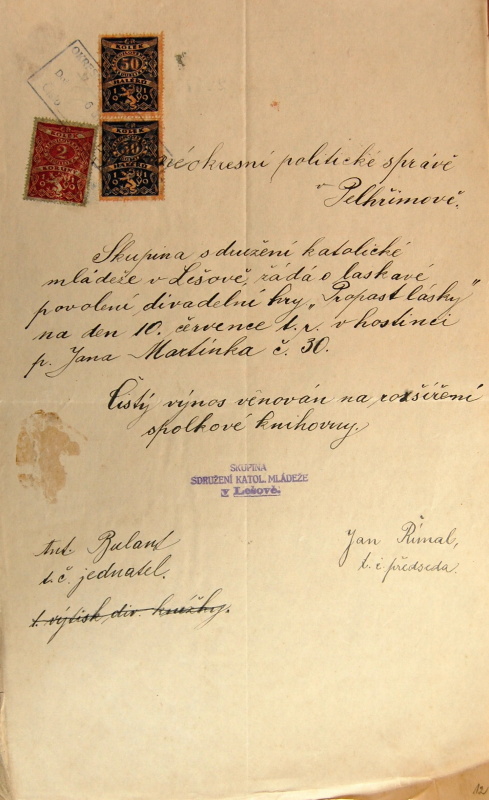 ČR
KOLEK
50
HALÉŘŮ
1919
ČR
KOLEK
2
KORUNY
1919
ČR
KOLEK
50
HALÉŘŮ
1919
okresní politické správě
v Pelhřimově.
Skupina sdružení katolické
mládeže v Lešově, žádá o laskavé
povolení divadelní hry „Propast lásky"
na den 10. července t. r. v hostinci
p. Jana Martínka č. 30.
Čistý výnos věnován na rozšíření
spolkové knihovny.
SKUPINA
SDRUŽENÍ KATOL. MLÁDEŽE
v Lešově.
Ant. Bulant
t. č. jednatel.
Jan Římal,
t. č. předseda.
1. výtisk div. knížky.
12